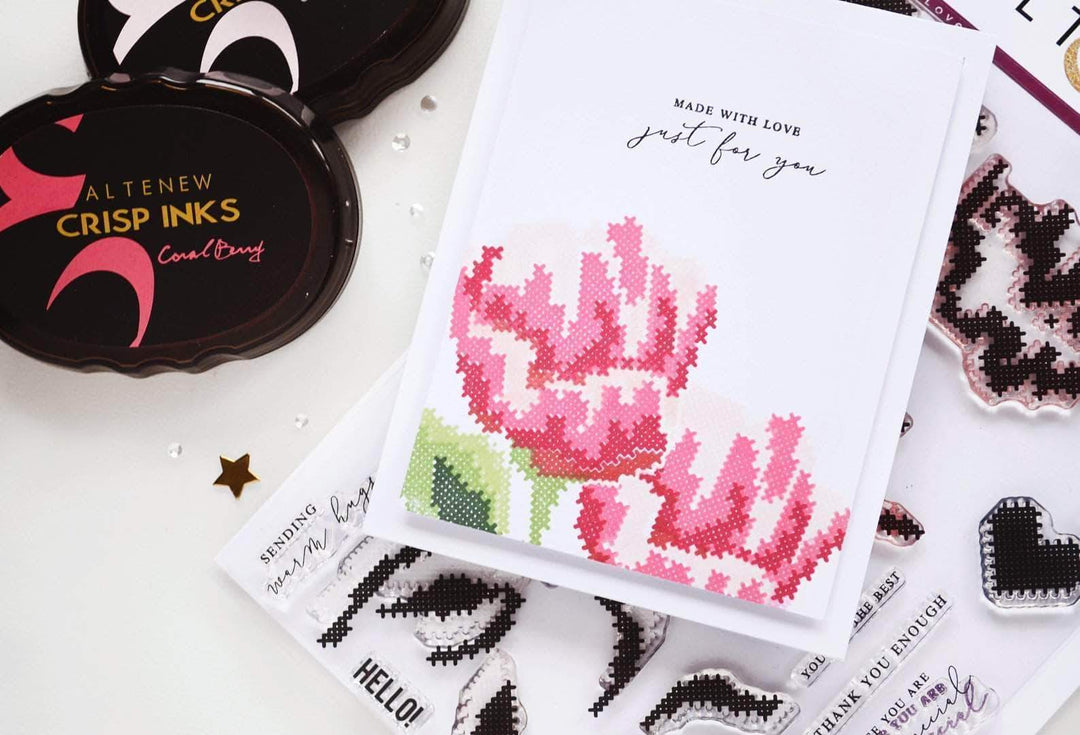 CRISP
ALTENEW
CRISP INKS
Coral Berry
MADE WITH LOVE
just for you
Love
LT
SENDING
warm hugs
HELLO!
YOU
THE BEST
THANK YOU ENOUGH
YOU ARE
YOU ARE
special